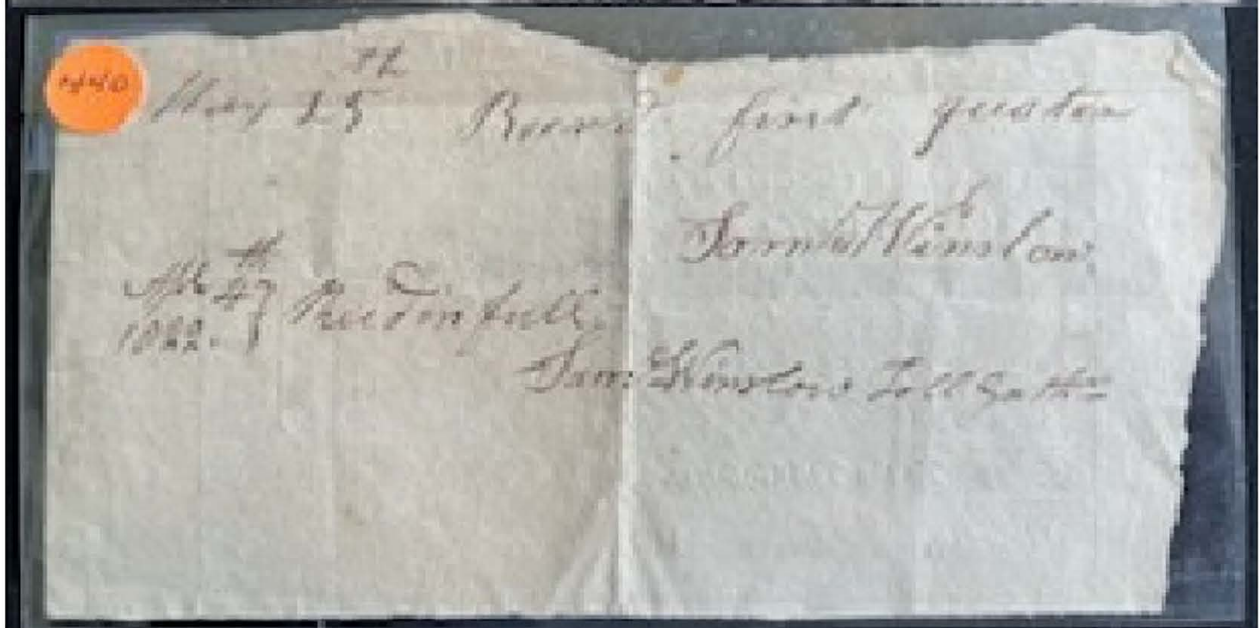 440
May 25th Recvd. first quater
Saml Winslow
Apl 4th
1822. } Recd in full.
Saml Winslow Toll Gathr